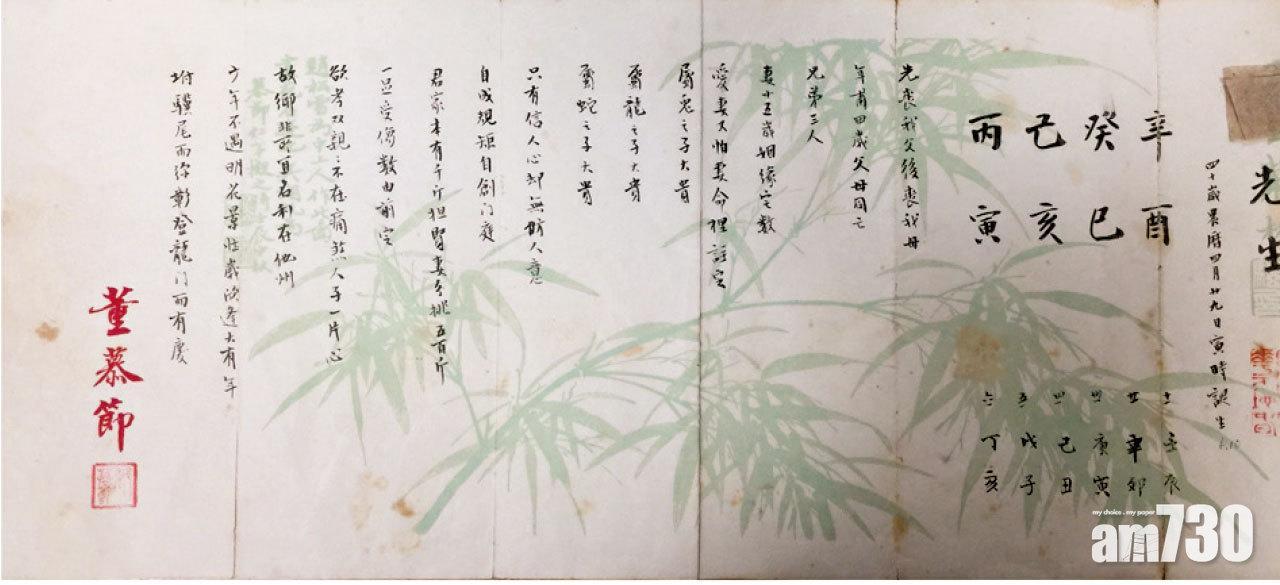 先生
四十歲農曆四月廿九日寅時誕生
辛酉
癸巳
己亥
丙寅
壬辰
廿 辛卯
卅 庚寅
四 己丑
五 戊子
六 丁亥
先喪我父後喪我母
年甫四歲父母同亡
兄弟三人
妻小五歲姻緣定數
愛妻又怕妻命裡註定
屬兔之子大貴
屬龍之子大貴
屬蛇之子大貴
只有信人心却無妨人意
自成規矩自創门庭
君家本有千斤担賢妻能挑五百斤
一旦受傷數由前定
欲孝双親親不在痛煞人子一片心
故鄉非所宜名利在他州
六年不遇明花景壮歲欣逢大有年
坿驥尾而弥彰登龍门而有慶
董慕節
my choice . my paper
am730